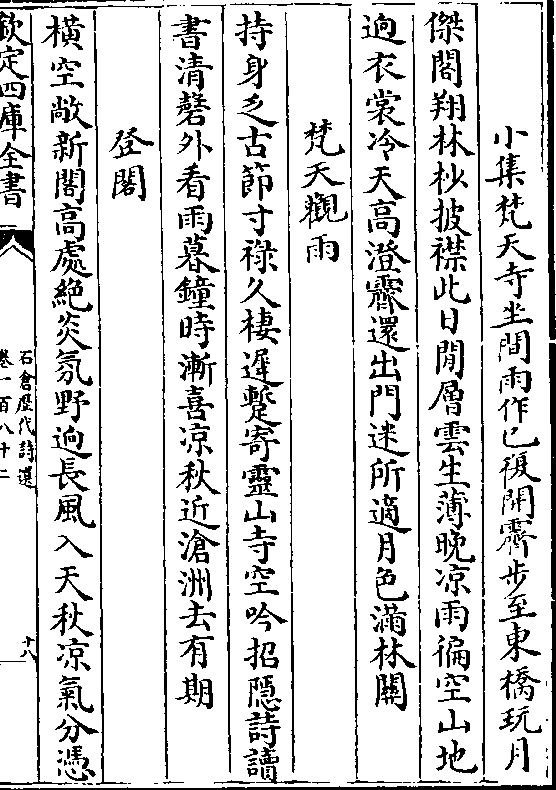 小集梵天寺坐間雨作已復開霽步至東橋玩月
傑閣翔林杪披襟此日閒層雲生薄晚凉雨徧空山地
逈衣裳冷天高澄霽還出門迷所適月色滿林關
梵天觀雨
持身乏古節寸禄久棲遲蹔寄靈山寺空吟招隠詩讀
書清磬外看雨暮鐘時漸喜凉秋近滄洲去有期
登閣
横空敞新閣高處絶炎氛野逈長風入天秋凉氣分憑
欽定四庫全書
石倉歴代詩選
卷一百八十二
十八